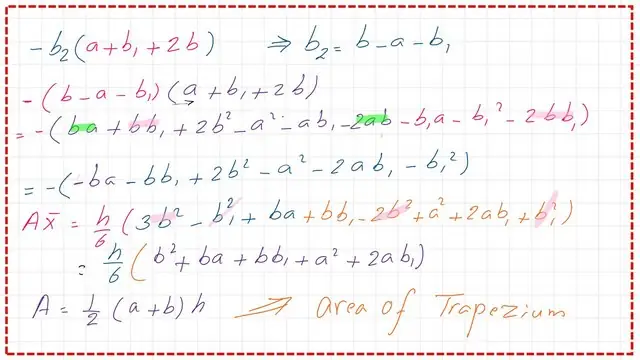 -b₂(a+b₁+2b) ⇒ b₂ = b-a-b₁
-(b-a-b₁)(a+b₁+2b)
= -(ba+bb₁+2b²-a²-ab₁-2ab-b₁a-b₁²-2bb₁)
= -(-ba-bb₁+2b²-a²-2ab₁-b₁²)
Ax̄ = h/6 (3b²-b₁²+ba+bb₁-2b²+a²+2ab₁+b₁²)
= h/6 (b²+ba+bb₁+a²+2ab₁)
A = 1/2 (a+b)h ⇒ area of Trapezium